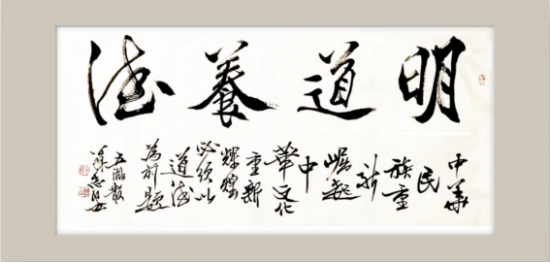 明道養德
中華
民
族重
新
崛起
中
華文化
重新
輝煌
必須以
道德
為前題
五湖散